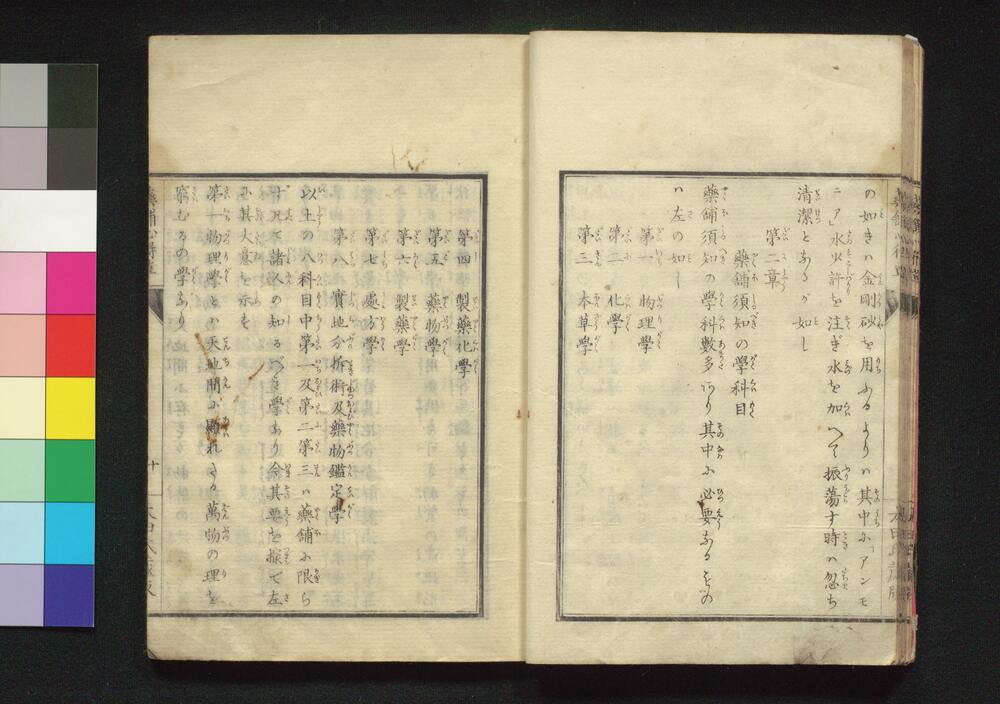 の如きハ金剛砂を用ふるよりハ其中に「アンモ
ニア」水少許を注ぎ水を加へて振蕩す時ハ忽ち
清潔となるが如し
第二章
藥舗須知の學科目
藥舗須知の學科數多あり其中に必要なるもの
ハ左の如し
第一 物理學
第二 化學
第三 本草學
第四 製藥化學
第五 藥物學
第六 製藥學
第七 處方學
第八 實地分拆術及藥物鑑定學
以上の八科目中第一及第二第三ハ藥舗に限ら
ず凡て諸人の知るべき學なり今其要を採て左
に其大意を示す
第一物理學とハ天地間に顯れたる萬物の理を
窮むるの學なり
十